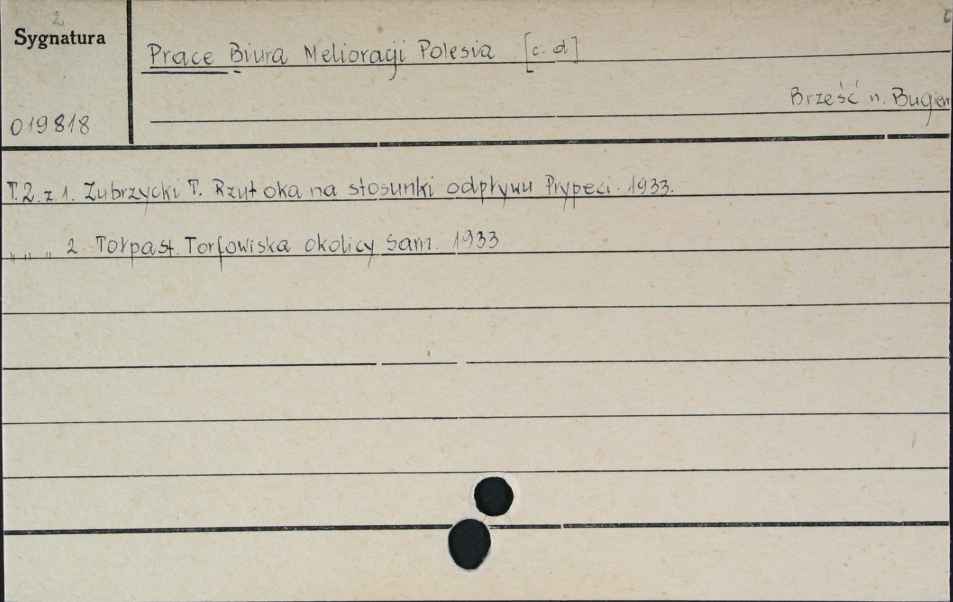 2
Sygnatura
Prace Biura Melioracji Polesia [c. d]
Brześć n. Bugiem
019818
T. 2. z 1. Zubrzycki T. Rzut oka na stosunki odpływu Prypeci. 1933.
„ „ „ 2. Tołpa St. Torfowiska okolicy Sarn. 1933